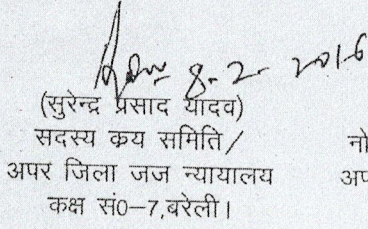 8-2-2016
(सुरेन्द्र प्रसाद यादव)
सदस्य क्रय समिति/ नो
अपर जिला जज न्यायालय अप
कक्ष सं0-7,बरेली।